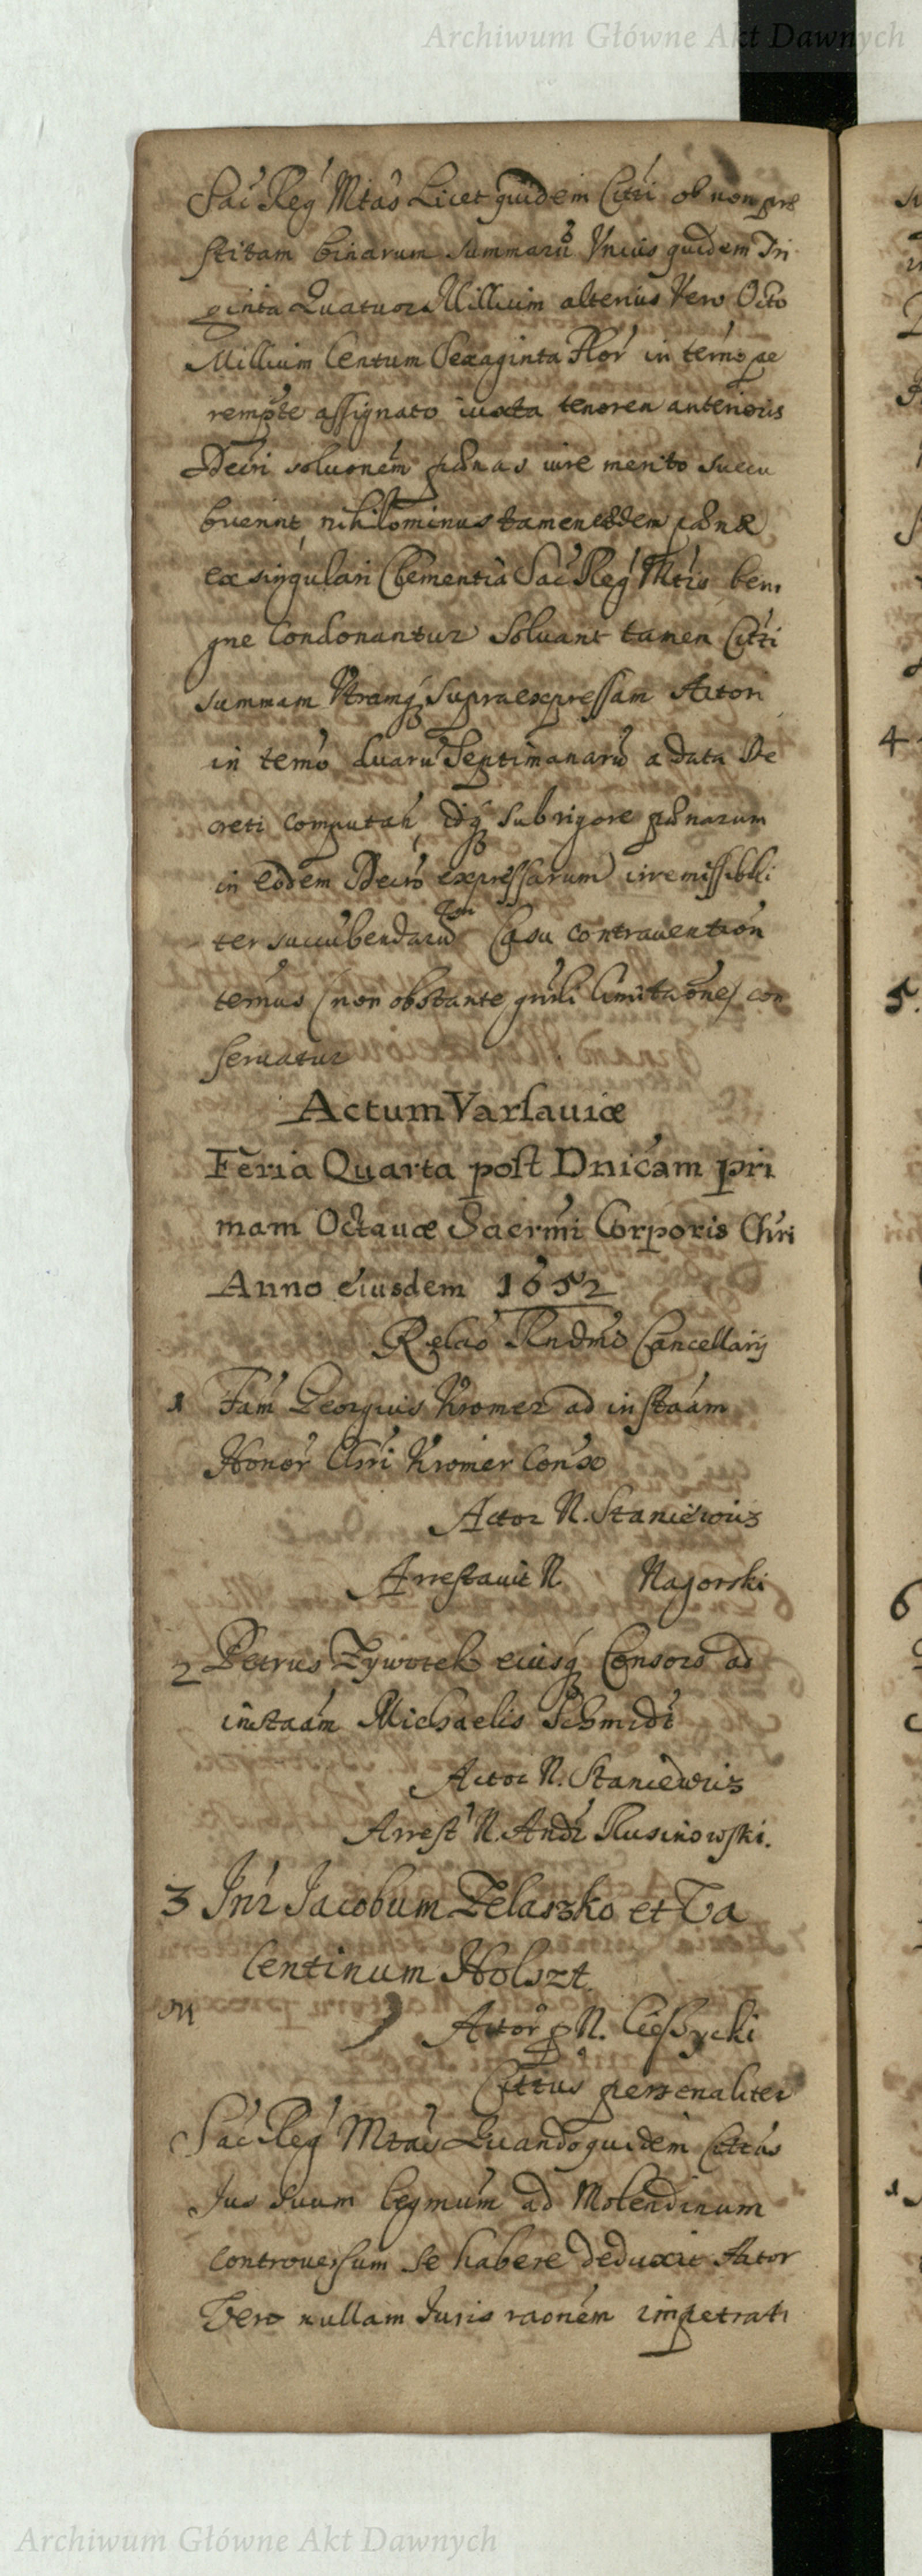 Archiwum Główne Akt Dawnych
Sac Reg Mtas Licet quidem Citti ob non præ
stitam binarum summarū Vnius quidem Tri
ginta Quatuor Millium alterius Vero Octo
Millium Centum Sexaginta Flor in termo pe
rempte assignato iuxta tenorem anterioris
Decri soluonem pœnas iure merito succu
buerint, nihilominus tamen eædem pœnæ
ex singulari Clementia Sac Reg Mtis beni
gne Condonantur Soluant tamen Citti
summam Vtramq supraexpressam Actori
in termo duarū Septimanarū a data De
creti computati, idq sub rigore pœnarum
in eodem Decro expressarum irremissibili
ter succubendarū Casu contrauention
termus (non obstante gnrli limitaone) con
seruatur
Actum Varsauiæ
Feria Quarta post Dnicam pri
mam Octauæ Sacrmi Corporis Chri
Anno eiusdem 1652
Relao Rndmi Cancellarij
1 Fam Georgius Kromer ad instaam
Honor Chri Kromer Conso
Actor N. Staniewis
Arrestauit N. Nagorski
2 Petrus Zywotek eiusq Consors ad
instaam Michaelis Schmidt
Actor N. Staniewis
Arrest N. Andr Rusinowski.
3 Intr Jacobum Zelaszko et Va
lentinum Holszt
Actor p N. Cieszycki
Cittus personaliter
Sac Reg Mtas Quandoquidem Cittus
Jus suum legmum ad Molendinum
controuersum se habere deduxit Actor
Vero nullam Juris raonem impetrati
4
5.
6
Archiwum Główne Akt Dawnych